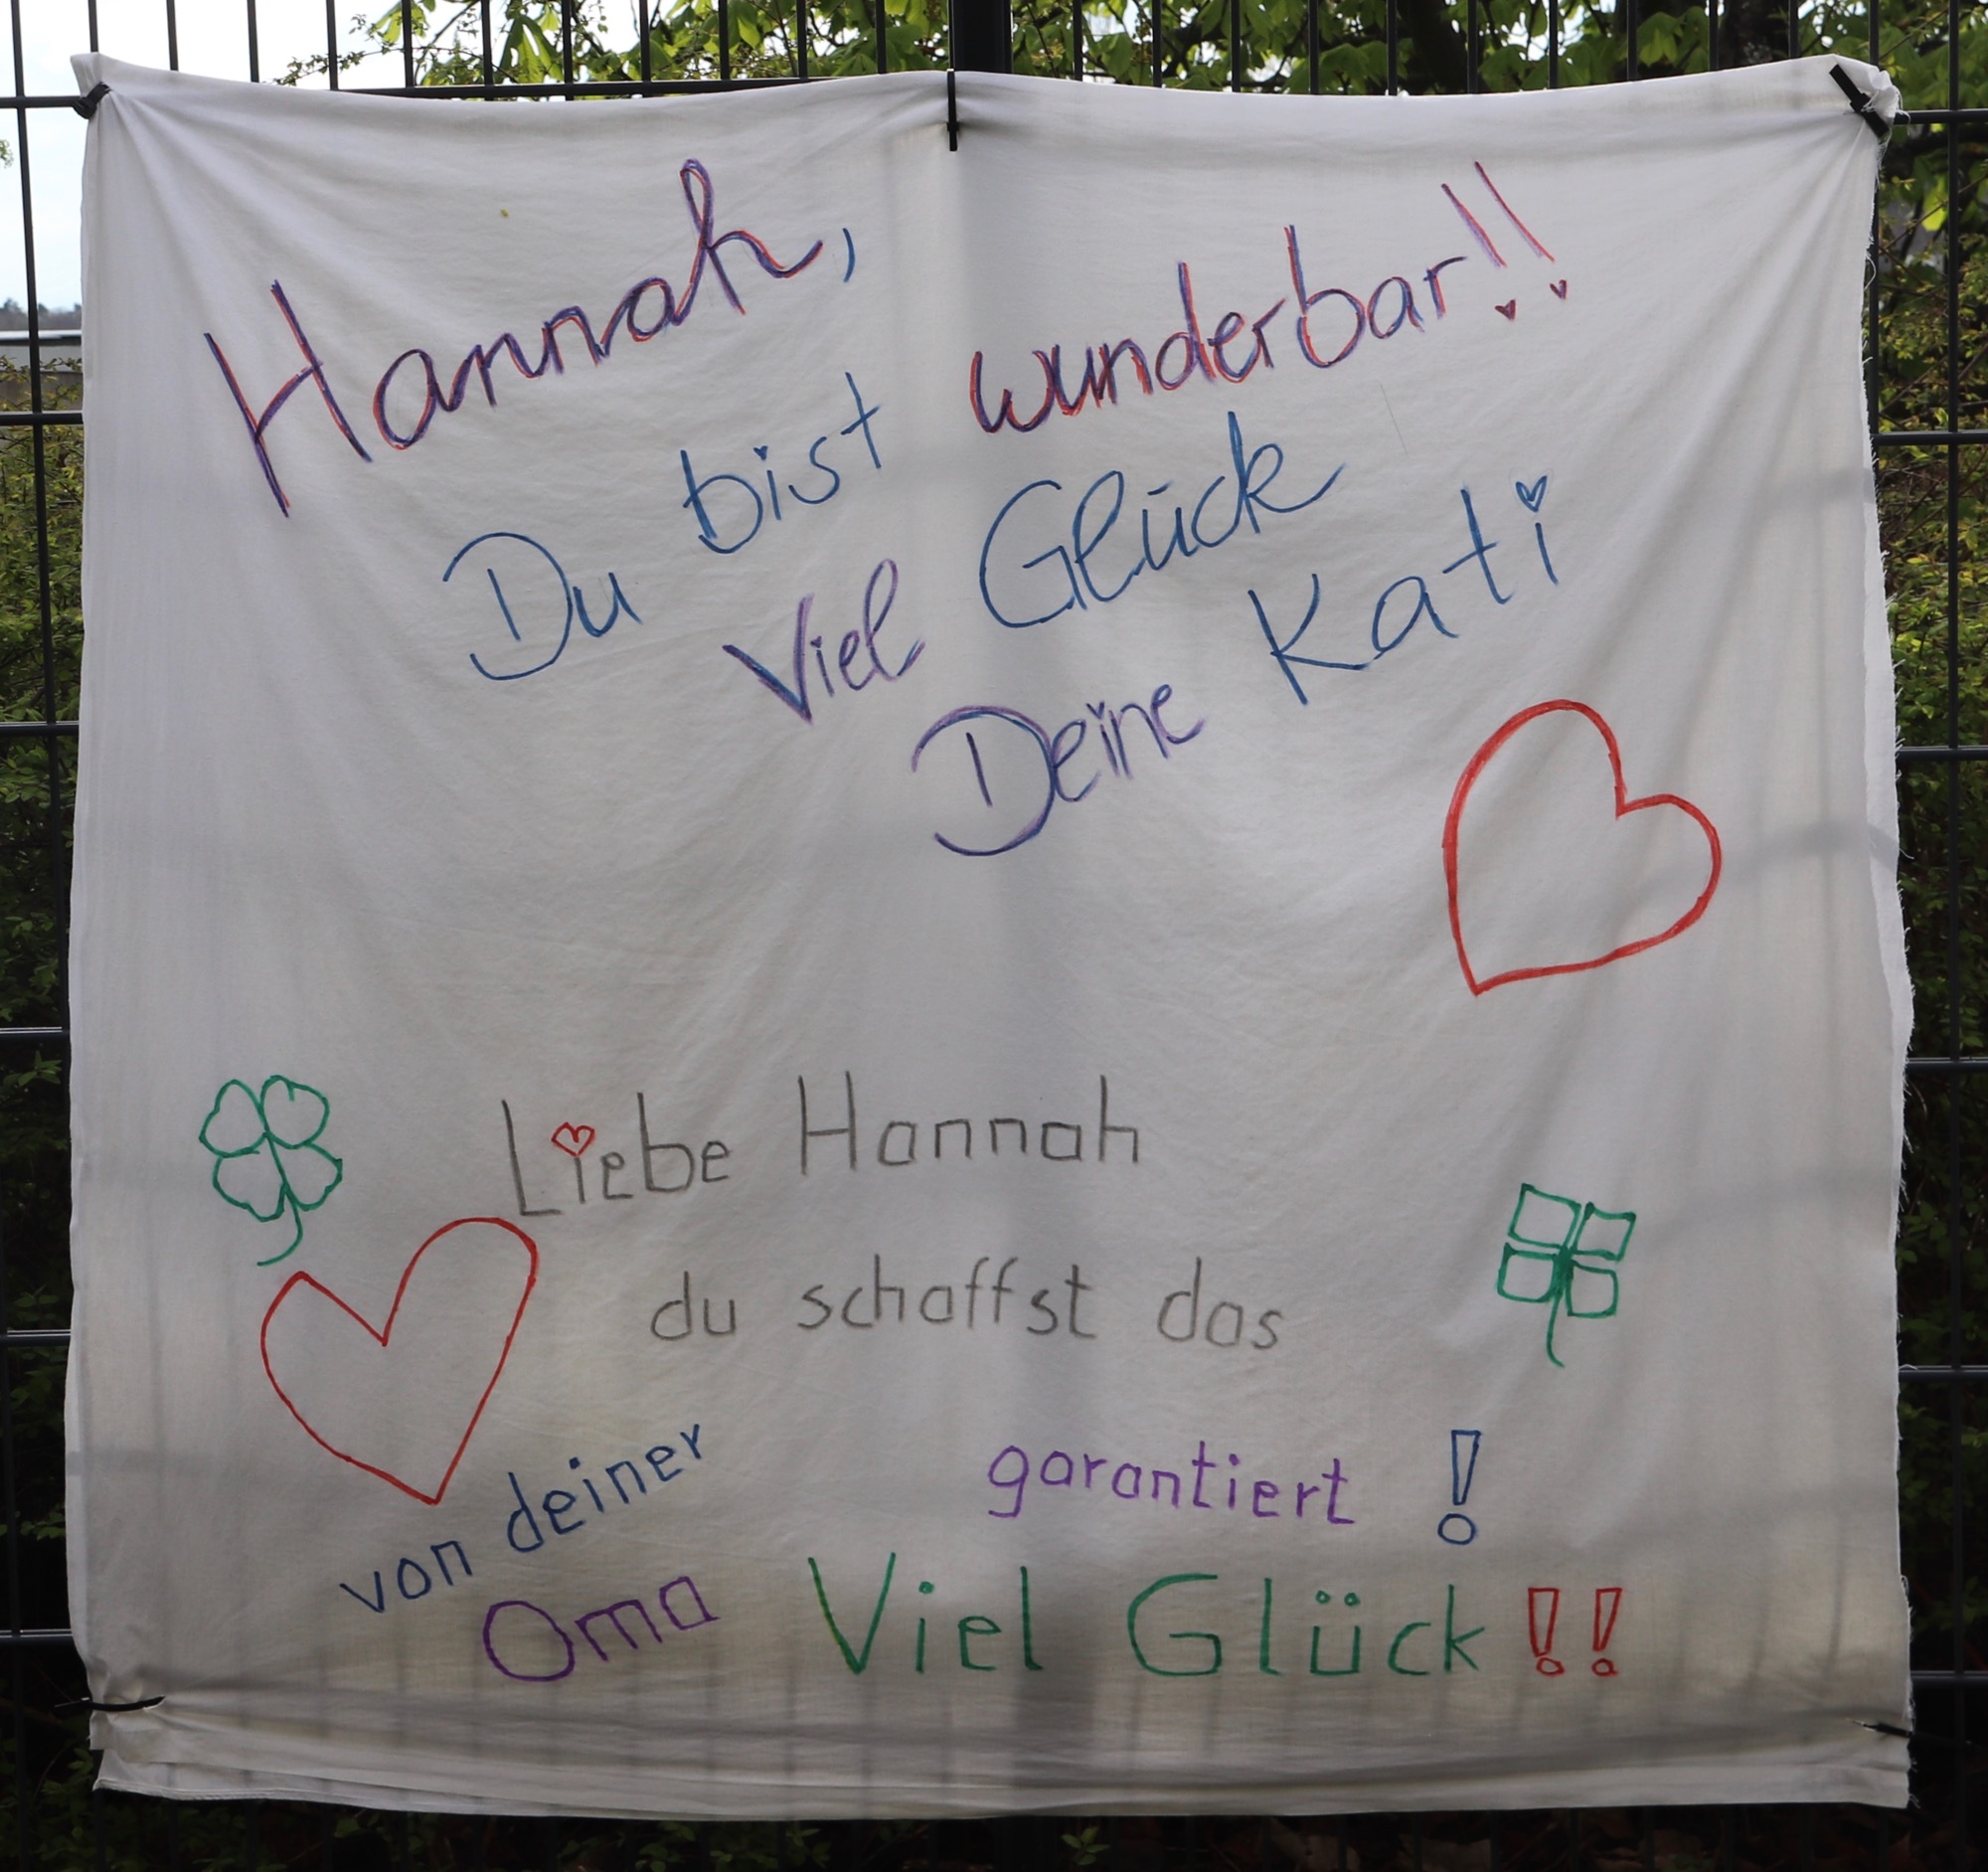 Hannah,
Du bist wunderbar!!
Viel Glück
Deine Kati
Liebe Hannah
du schaffst das
garantiert !
von deiner
Oma
Viel Glück!!